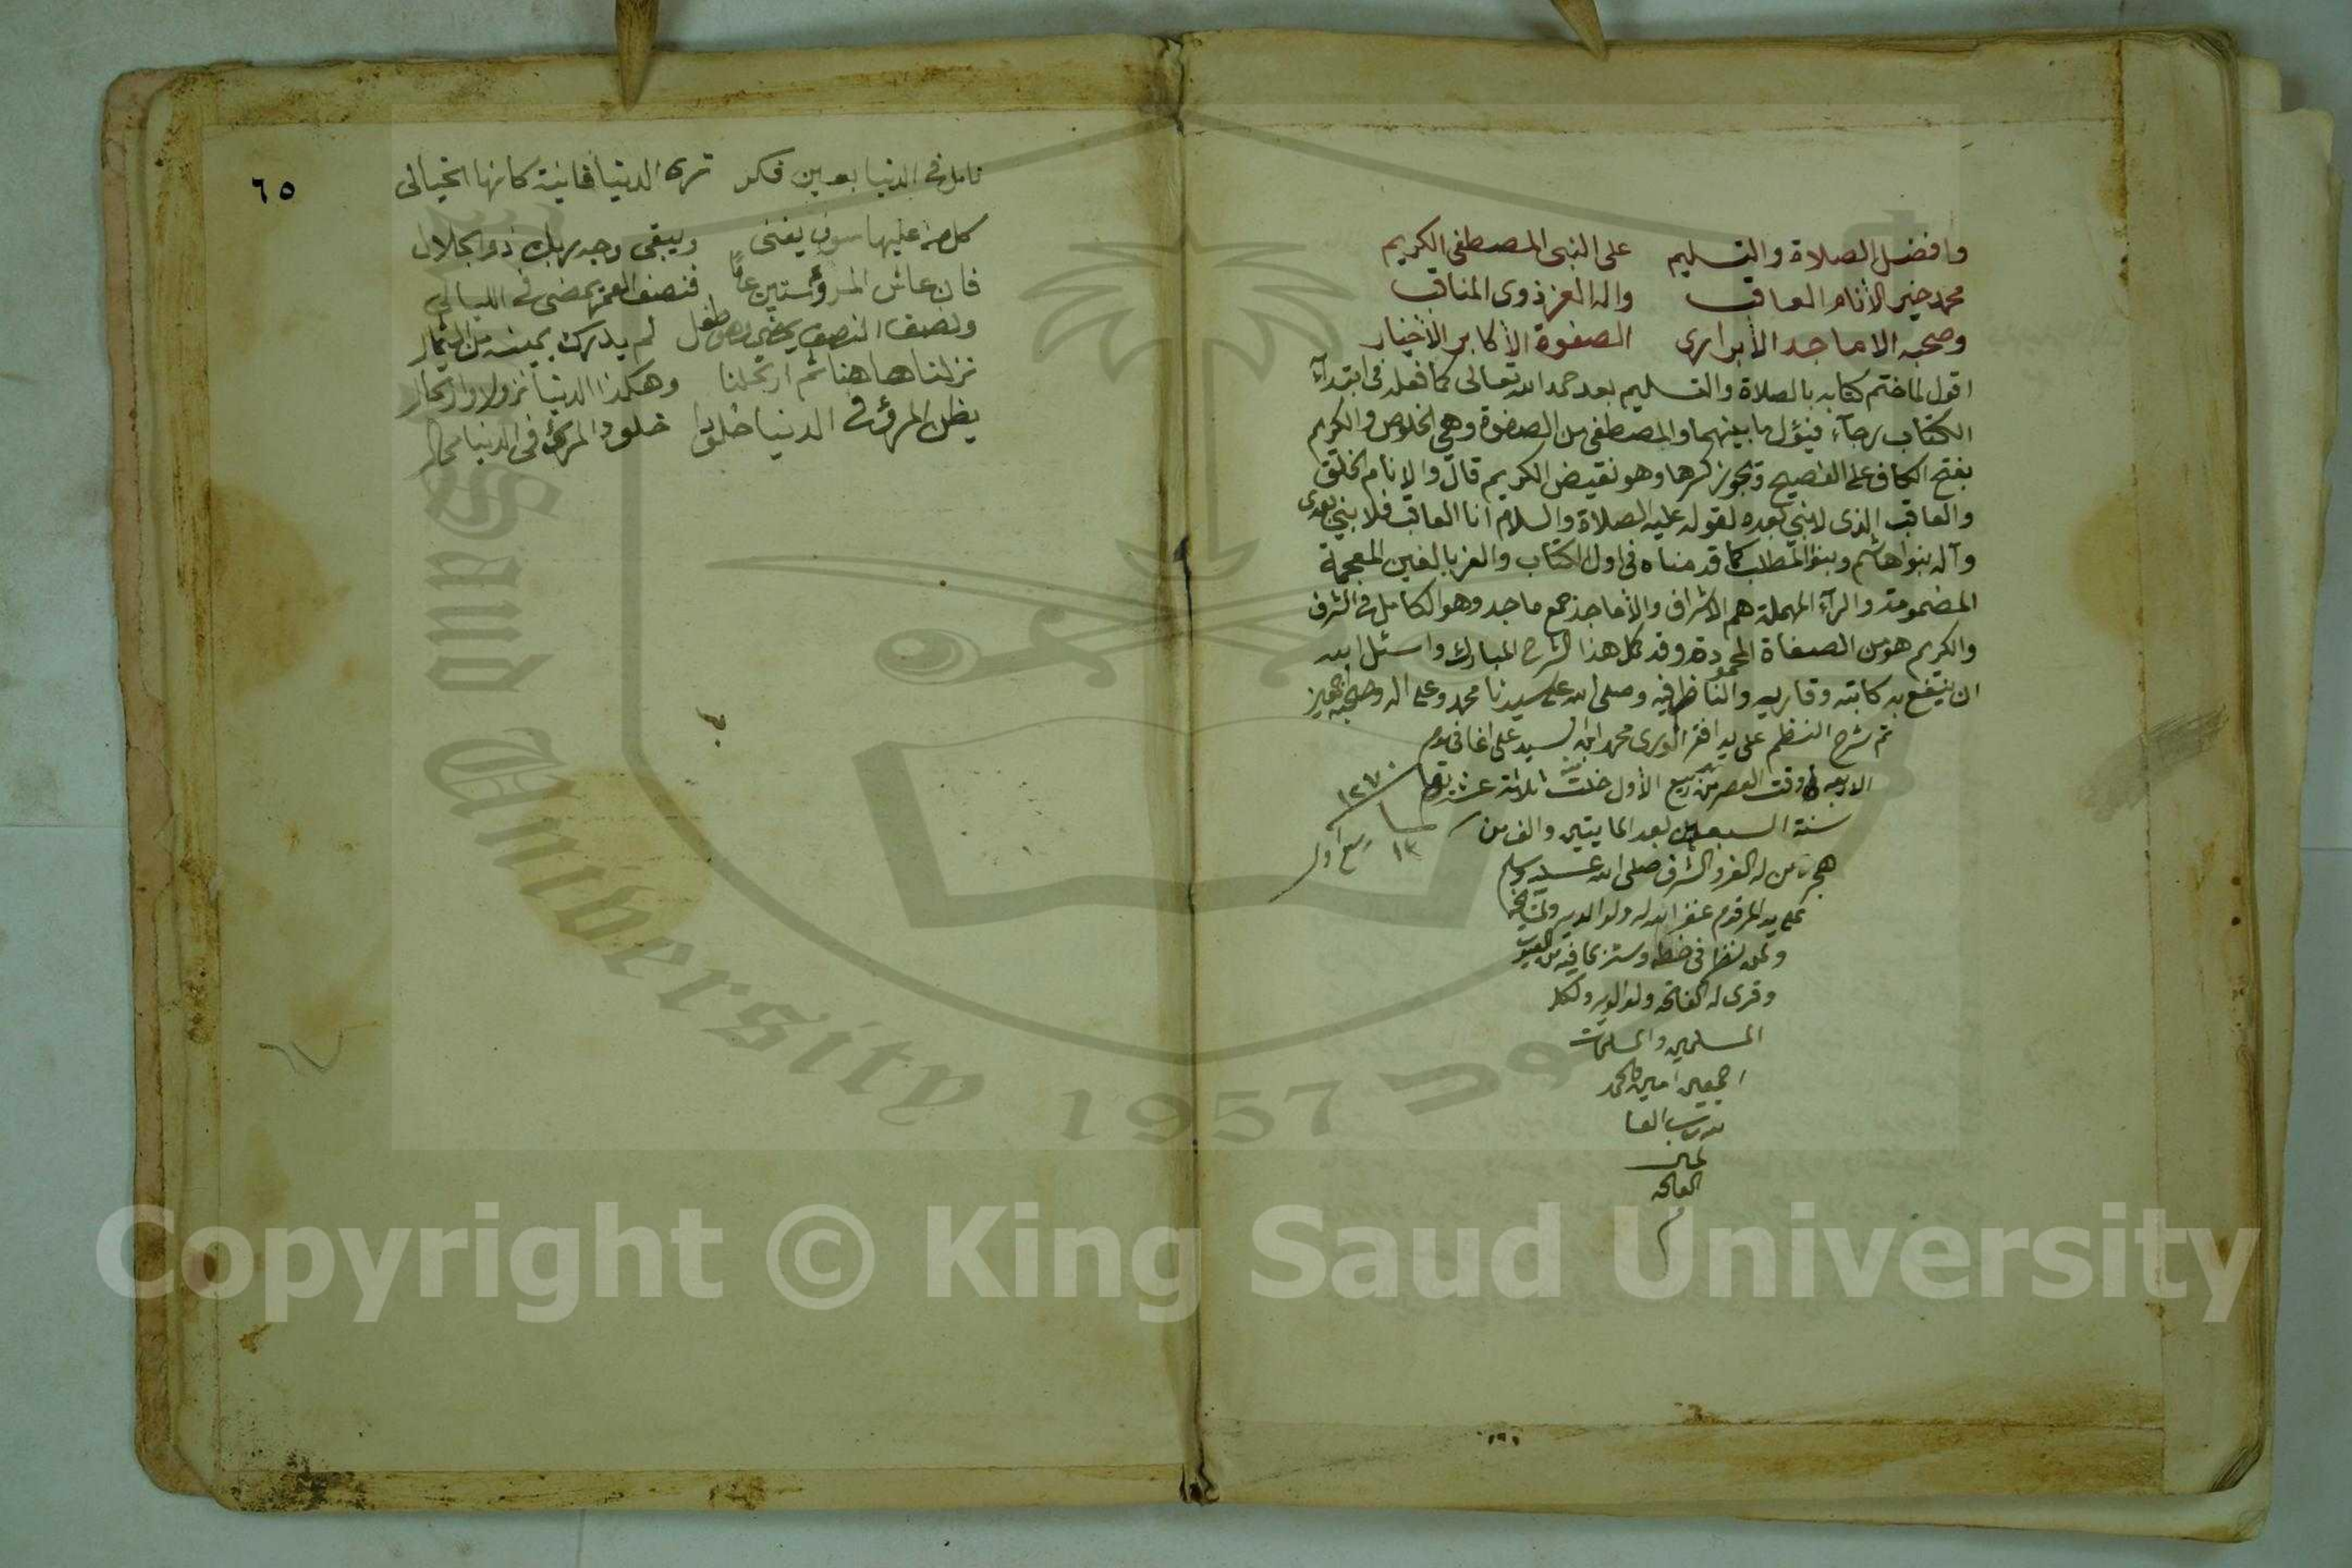 وافضل الصلاة والتسليم على النبى المصطفى الكريم
محمد خير الأنام العاقب واله الغر ذوى المناقب
وصحبه الاماجد الأبرارى الصفوة الأكابر الأخيار
اقول لما ختم كتابه بالصلاة والتسليم بعد حمد الله تعالى كما فعله فى ابتدآء
الكتاب رجآء ما بينهما والمصطفى من الصفوة وهى الخلوص والكريم
بفتح الكاف على الفصيح ويجوز كسرها وهو نقيض الكريم قال والانام الخلق
والعاقب الذى لا نبي بعده لقوله عليه الصلاة والسلام انا العاقب فلا نبي بعدى
وآله بنوا هاشم وبنو المطلب كما قدمناه فى اول الكتاب والغر بالغين المعجمة
المضمومة والرآء المهملة هم الاشراف والأماجد جمع ماجد وهو الكامل فى الشرف
والكريم هو من الصفاة المحمودة وقد كمل هذا الشرح المبارك واسئل الله
ان ينتفع به كاتبه وقاريه والناظر فيه وصلى الله على سيدنا محمد وعلى اله وصحبه اجمعين
تم شرح النظم على يد افقر الورى محمد ابن السيد على اغا فى يوم
الاربعه وقت العصر من ربيع الأول خلت ثلاثة عشر
١٢٧٠
سنة السبعين بعد المايتين والف من
١٣ ربيع اول
هجرت من له العز والشرف صلى الله عليه وسلم
على يد المرقوم غفر الله له ولوالديه
ولمن نظر فى خطه وستر بما فيه من العيوب
وقرى له الفاتحه ولوالديه ولكل
المسلمين والمسلمات
اجمعين امين والحمد
لله رب العا
لمين
الفاتحه
م
٦٥
تامل فى الدنيا بعين فكر ترى الدنيا فانية كانها الخيالى
كل من عليها سوف يفنى ويبقى وجه ربك ذو الجلال
فان عاش المرؤ ستين عامًا فنصف العمر يمضى فى الليالى
ونصف النصف يمضى وهو طفل لم يدرك يمينه من الشمال
نزلنا هاهنا ثم ارتحلنا وهكذا الدنيا نزولا وارتحال
يظن المرؤ فى الدنيا خلودا خلود المرؤ فى الدنيا محال
Copyright © King Saud University
Saud University 1957